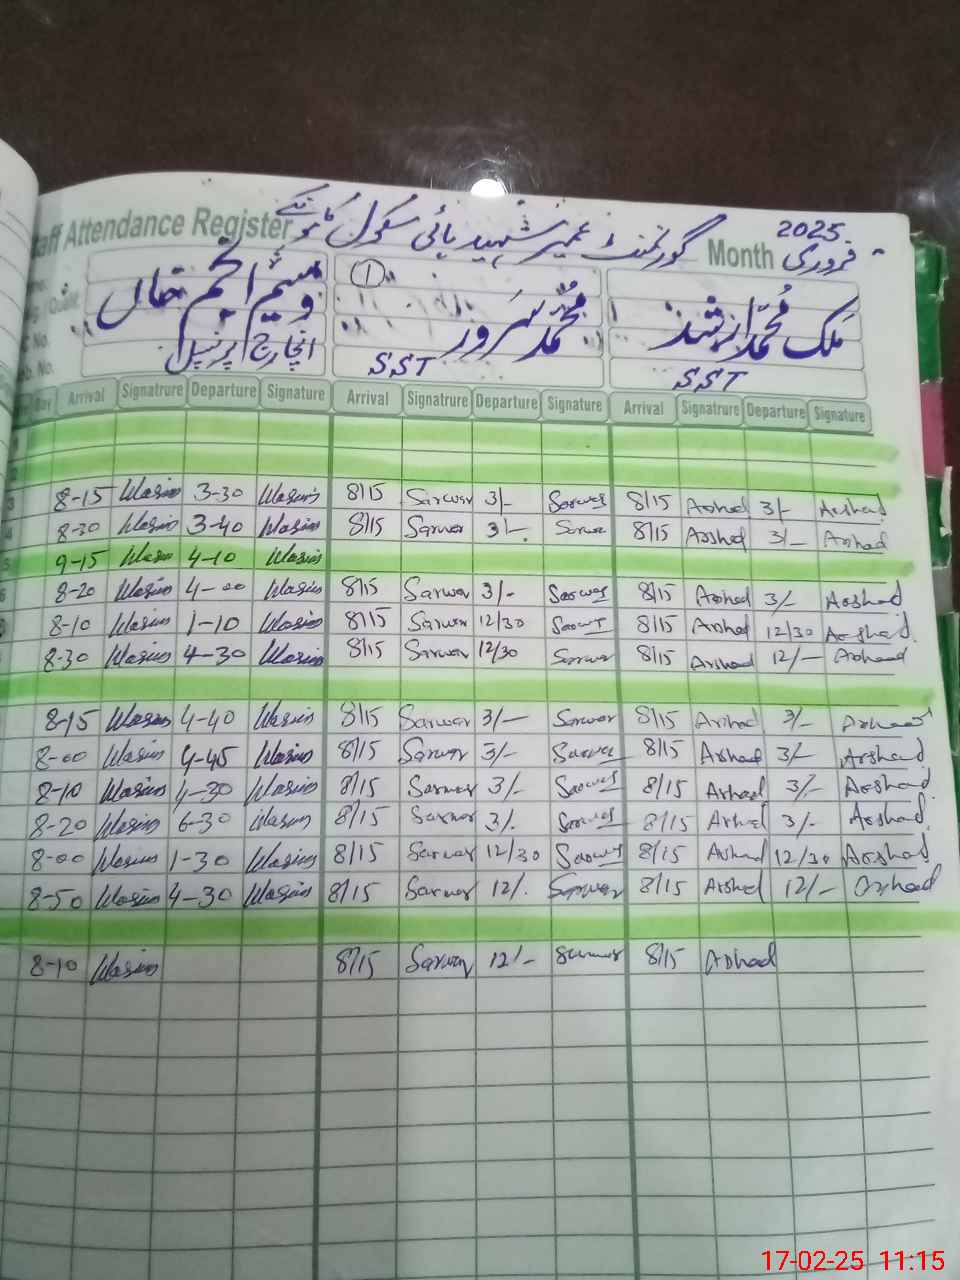 Staff Attendance Register گورنمنٹ عمیر شہید ہائی سکول Month فروری 2025
وسیم انجم خاں ① محمد سرور ملک محمد ارشد
انچارج پرنسپل SST SST
No.
No.
Day Arrival Signatrure Departure Signature Arrival Signatrure Departure Signature Arrival Signatrure Departure Signature
3 8-15 Wasim 3-30 Wasim 8/15 Sarwar 3/- Sarwar 8/15 Arshad 3/- Arshad
4 8-30 Wasim 3-40 Wasim 8/15 Sarwar 3/-. Sarwar 8/15 Arshad 3/- Arshad
5 9-15 Wasim 4-10 Wasim
6 8-20 Wasim 4-00 Wasim 8/15 Sarwar 3/- Sarwar 8/15 Arshad 3/- Arshad
8-10 Wasim 1-10 Wasim 8/15 Sarwar 12/30 Sarwar 8/15 Arshad 12/30 Arshad
8-30 Wasim 4-30 Wasim 8/15 Sarwar 12/30 Sarwar 8/15 Arshad 12/- Arshad
8-15 Wasim 4-40 Wasim 8/15 Sarwar 3/- Sarwar 8/15 Arshad 3/- Arshad
8-00 Wasim 4-45 Wasim 8/15 Sarwar 3/- Sarwar 8/15 Arshad 3/- Arshad
8-10 Wasim 4-30 Wasim 8/15 Sarwar 3/- Sarwar 8/15 Arshad 3/- Arshad
8-20 Wasim 6-30 Wasim 8/15 Sarwar 3/. Sarwar 8/15 Arshad 3/- Arshad
8-00 Wasim 1-30 Wasim 8/15 Sarwar 12/30 Sarwar 8/15 Arshad 12/30 Arshad
8-50 Wasim 4-30 Wasim 8/15 Sarwar 12/. Sarwar 8/15 Arshad 12/- Arshad
8-10 Wasim 8/15 Sarwar 12/- Sarwar 8/15 Arshad
17-02-25 11:15